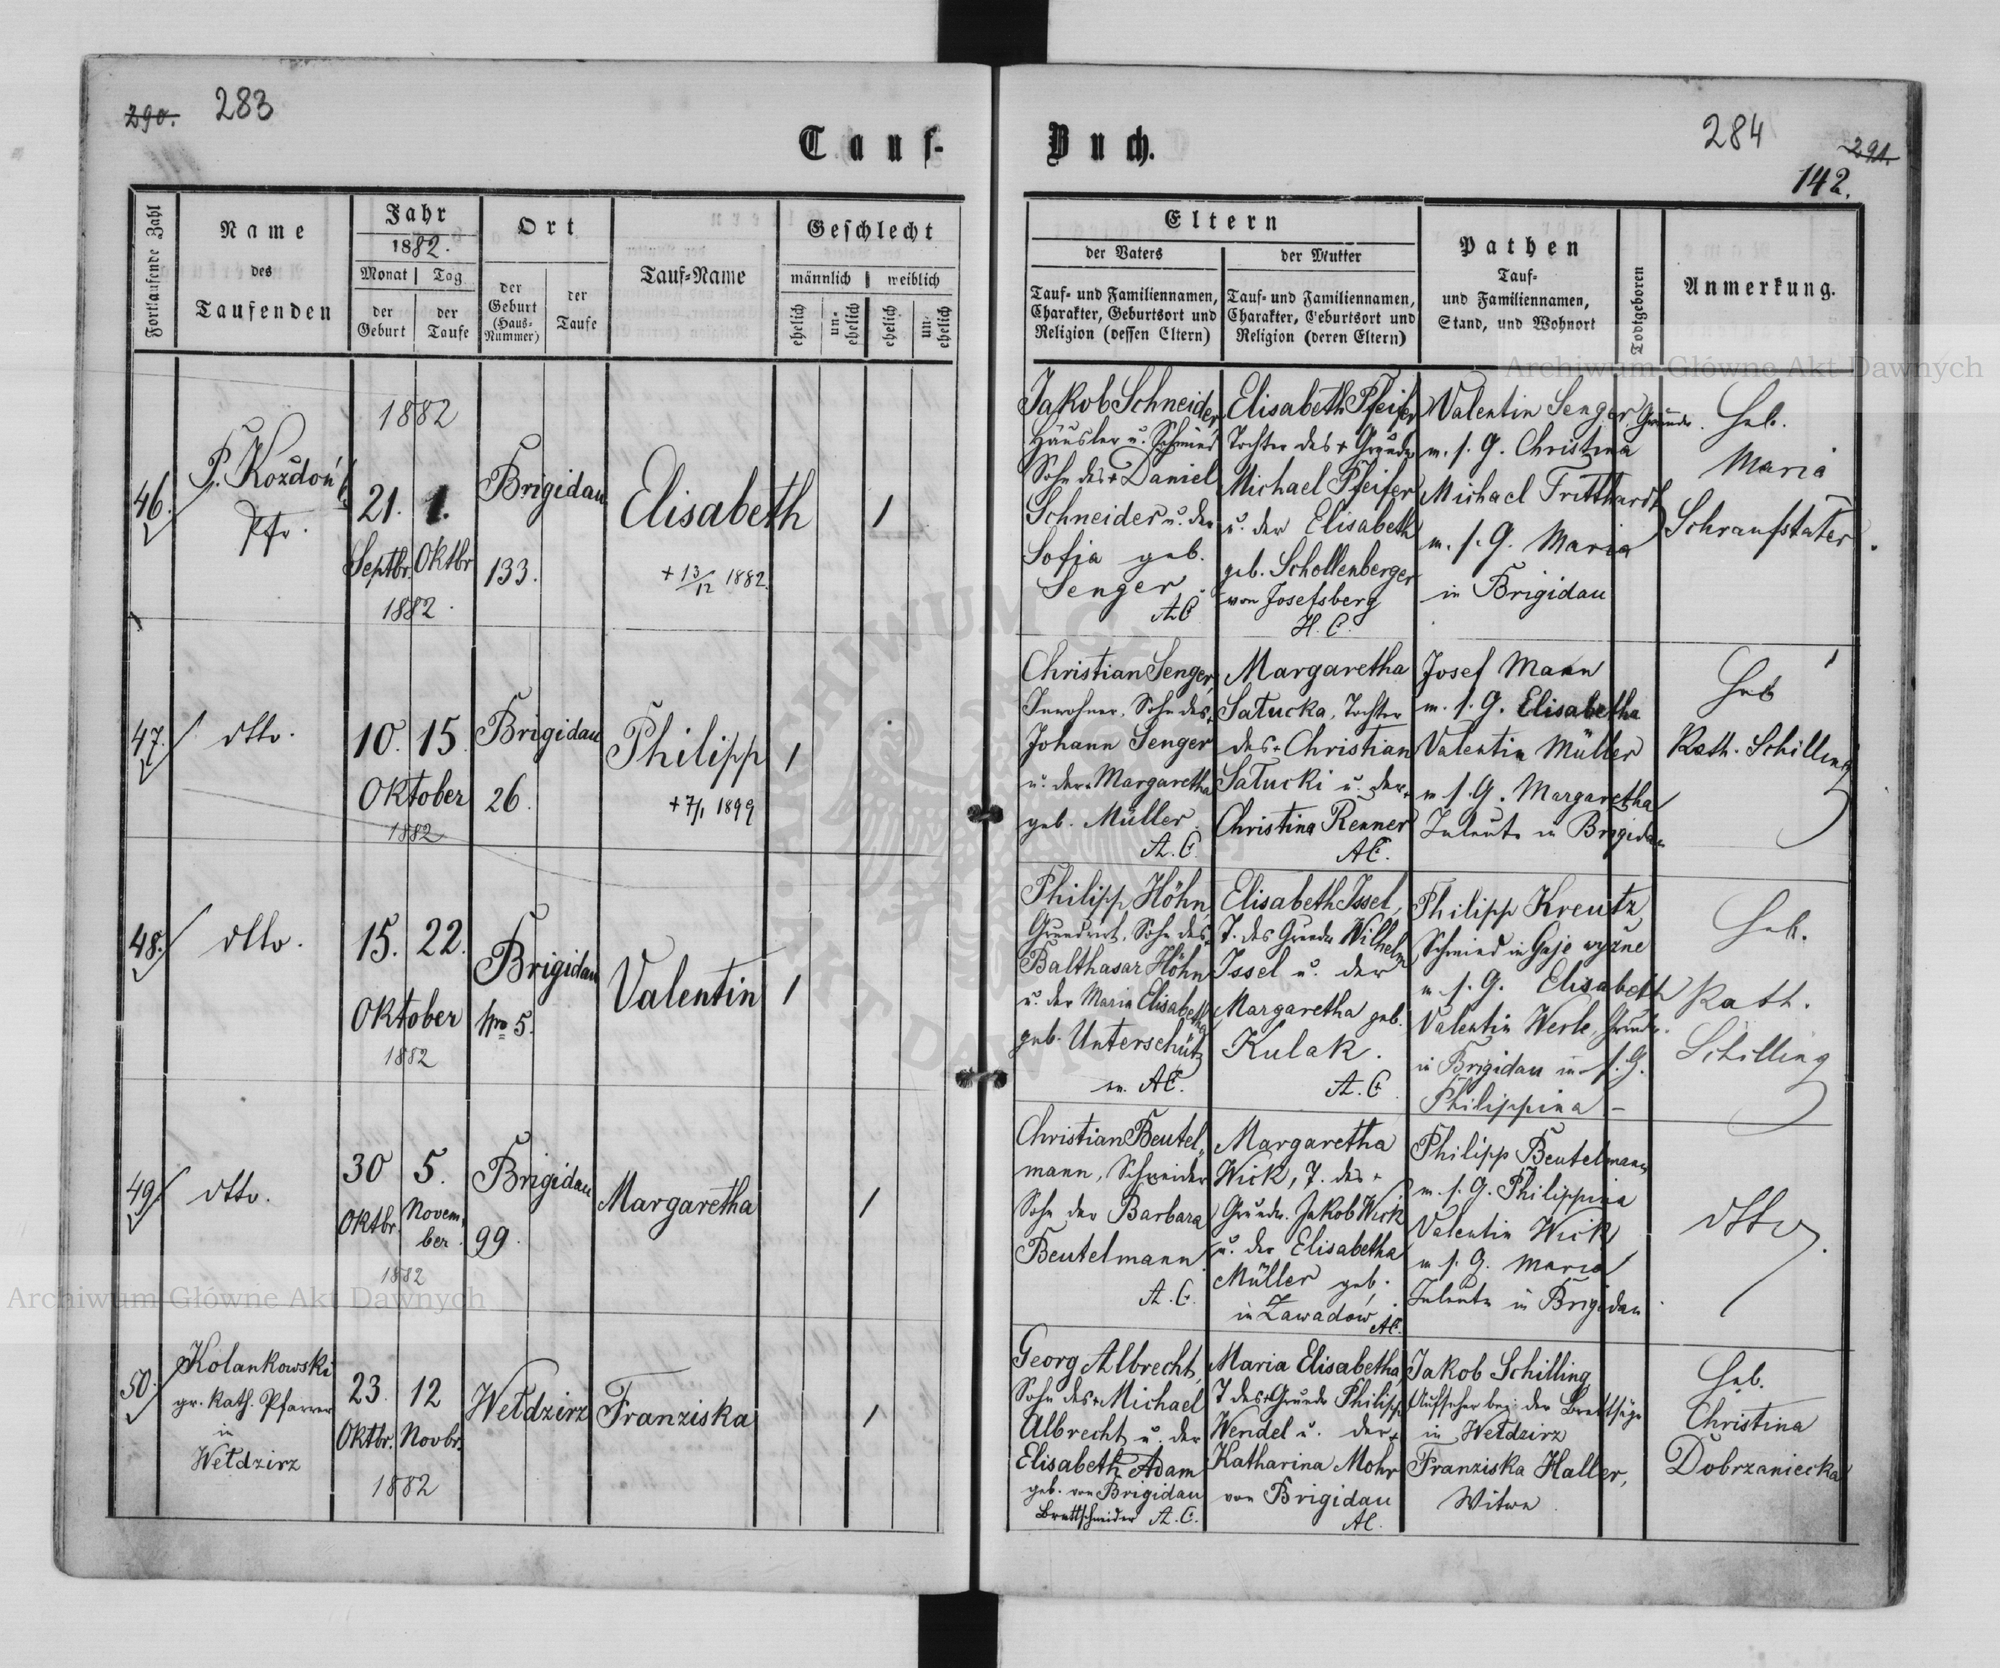 290. 283
Tauf-
Fortlaufende Zahl
Name
des
Taufenden
Jahr
1882.
Monat Tag
der Geburt
der Taufe
Ort
der Geburt (Haus-Nummer)
der Taufe
Tauf-Name
Geschlecht
männlich weiblich
ehelich
un-ehelich
ehelich
un-ehelich
46.
P. Kozdoń
Pfr.
1882
21. 1.
Septbr. Oktbr
1882.
Brigidau
133.
Elisabeth
+ 13/12 1882.
1
47.
dtto.
10. 15.
Oktober
1882
Brigidau
26.
Philipp
+ 7/1 1899
1
48.
dtto.
15. 22.
Oktober
1882
Brigidau
Nro 5.
Valentin
1
49.
dtto.
30 5.
Oktbr. Novem-
ber
1882
Brigidau
99.
Margaretha
1
50.
Kolankowski
gr. kath. Pfarrer
in
Wełdzirz
23. 12
Oktbr. Novbr.
1882
Wełdzirz
Franziska
1
Buch.
284
291.
142.
Eltern
der Vaters
Tauf- und Familiennamen,
Charakter, Geburtsort und
Religion (dessen Eltern)
der Mutter
Tauf- und Familiennamen,
Charakter, Geburtsort und
Religion (deren Eltern)
Pathen
Tauf-
und Familiennamen,
Stand, und Wohnort
Todtgeboren
Anmerkung.
Jakob Schneider,
Häusler u. Schmied
Sohn des + Daniel
Schneider u. der
Sofia geb.
Senger.
A.C
Elisabeth Pfeifer
Tochter des + Grundw.
Michael Pfeifer
u. der Elisabeth
geb. Schollenberger
von Josefsberg
H. C.
Valentin Senger, Grundw.
m. s. G. Christina
Michael Tritthardt
m. s. G. Maria
in Brigidau
Heb.
Maria
Schraufstäter.
Christian Senger,
Inwohner, Sohn des +
Johann Senger
u. der + Margaretha
geb. Müller
A. C.
Margaretha
Satucka, Tochter
des + Christian
Satucki u. der +
Christina Renner
AC.
Josef Mann
m. s. G. Elisabetha
Valentin Müller
m s. G. Margaretha
Inleute in Brigidau
Heb
Kath. Schilling
Philipp Höhn,
Grundwt, Sohn des +
Balthasar Höhn
u. der Maria Elisabetha
geb. Unterschütz
AC.
Elisabeth Issel,
T. des Grundw Wilhelm
Issel u. der
Margaretha geb.
Kulak.
A. C.
Philipp Kreutz,
Schmied in Gaje wyżne
m s. G. Elisabeth
Valentin Werle, Grundw.
in Brigidau m s. G.
Philippina –
Heb.
Kath.
Schilling
Christian Beutel-
mann, Schneider
Sohn der Barbara
Beutelmann
A. C.
Margaretha
Wick, T. des +
Grundw. Jakob Wick
u. der Elisabetha
Müller geb.
in Zawadów
AC.
Philipp Beutelmann
m. s. G. Philippina
Valentin Wick
m s. G. Maria
Inleute in Brigidau
dtto.
Georg Albrecht,
Sohn des + Michael
Albrecht u. der
Elisabeth Adam
geb. von Brigidau
Brettschneider A. C.
Maria Elisabetha,
T des + Grundw Philipp
Wendel u. der +
Katharina Mohr
von Brigidau
AC.
Jakob Schilling
Aufseher bei der Brettsäge
in Wełdzirz
Franziska Haller,
Witwe.
Heb.
Christina
Dobrzaniecka
Archiwum Główne Akt Dawnych
Archiwum Główne Akt Dawnych